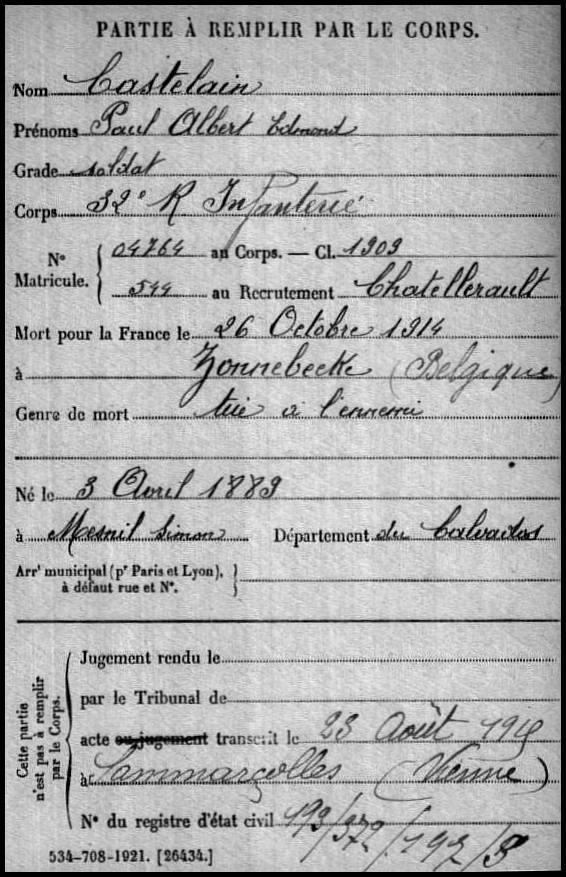 PARTIE À REMPLIR PAR LE CORPS.
Nom Castelain
Prénoms Paul Albert Edmond
Grade soldat
Corps 32e R Infanterie
N° Matricule. 04764 au Corps. — Cl. 1909
544 au Recrutement Chatellerault
Mort pour la France le 26 Octobre 1914
à Zonnebecke (Belgique)
Genre de mort tué à l'ennemi
Né le 3 Avril 1889
à Mesnil Simon Département du Calvados
Arrt municipal (pr Paris et Lyon),
à défaut rue et N°.
Cette partie
n'est pas à remplir
par le Corps.
Jugement rendu le
par le Tribunal de
acte ou jugement transcrit le 23 Août
à Sammarçolles (Vienne)
N° du registre d'état civil 193/372/
534-708-1921. [26434.]